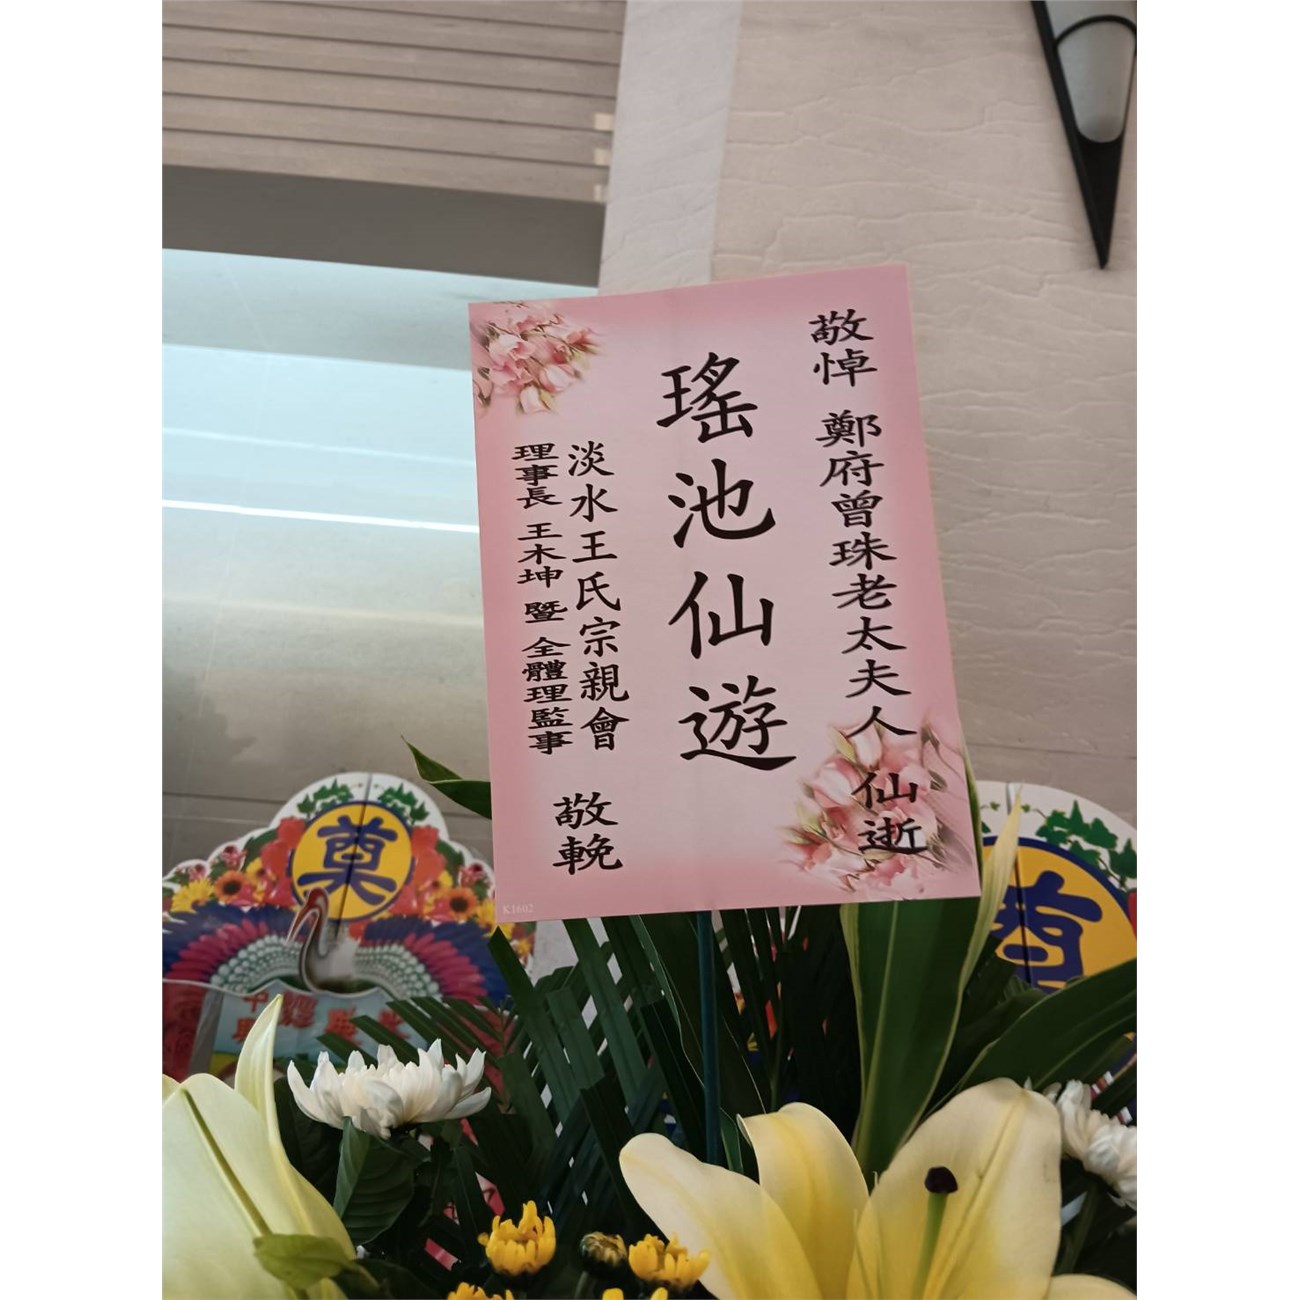 敬悼 鄭府曾珠老太夫人 仙逝
瑤池仙遊
淡水王氏宗親會
理事長 王木坤 暨 全體理監事
敬輓
K1602
奠
奠